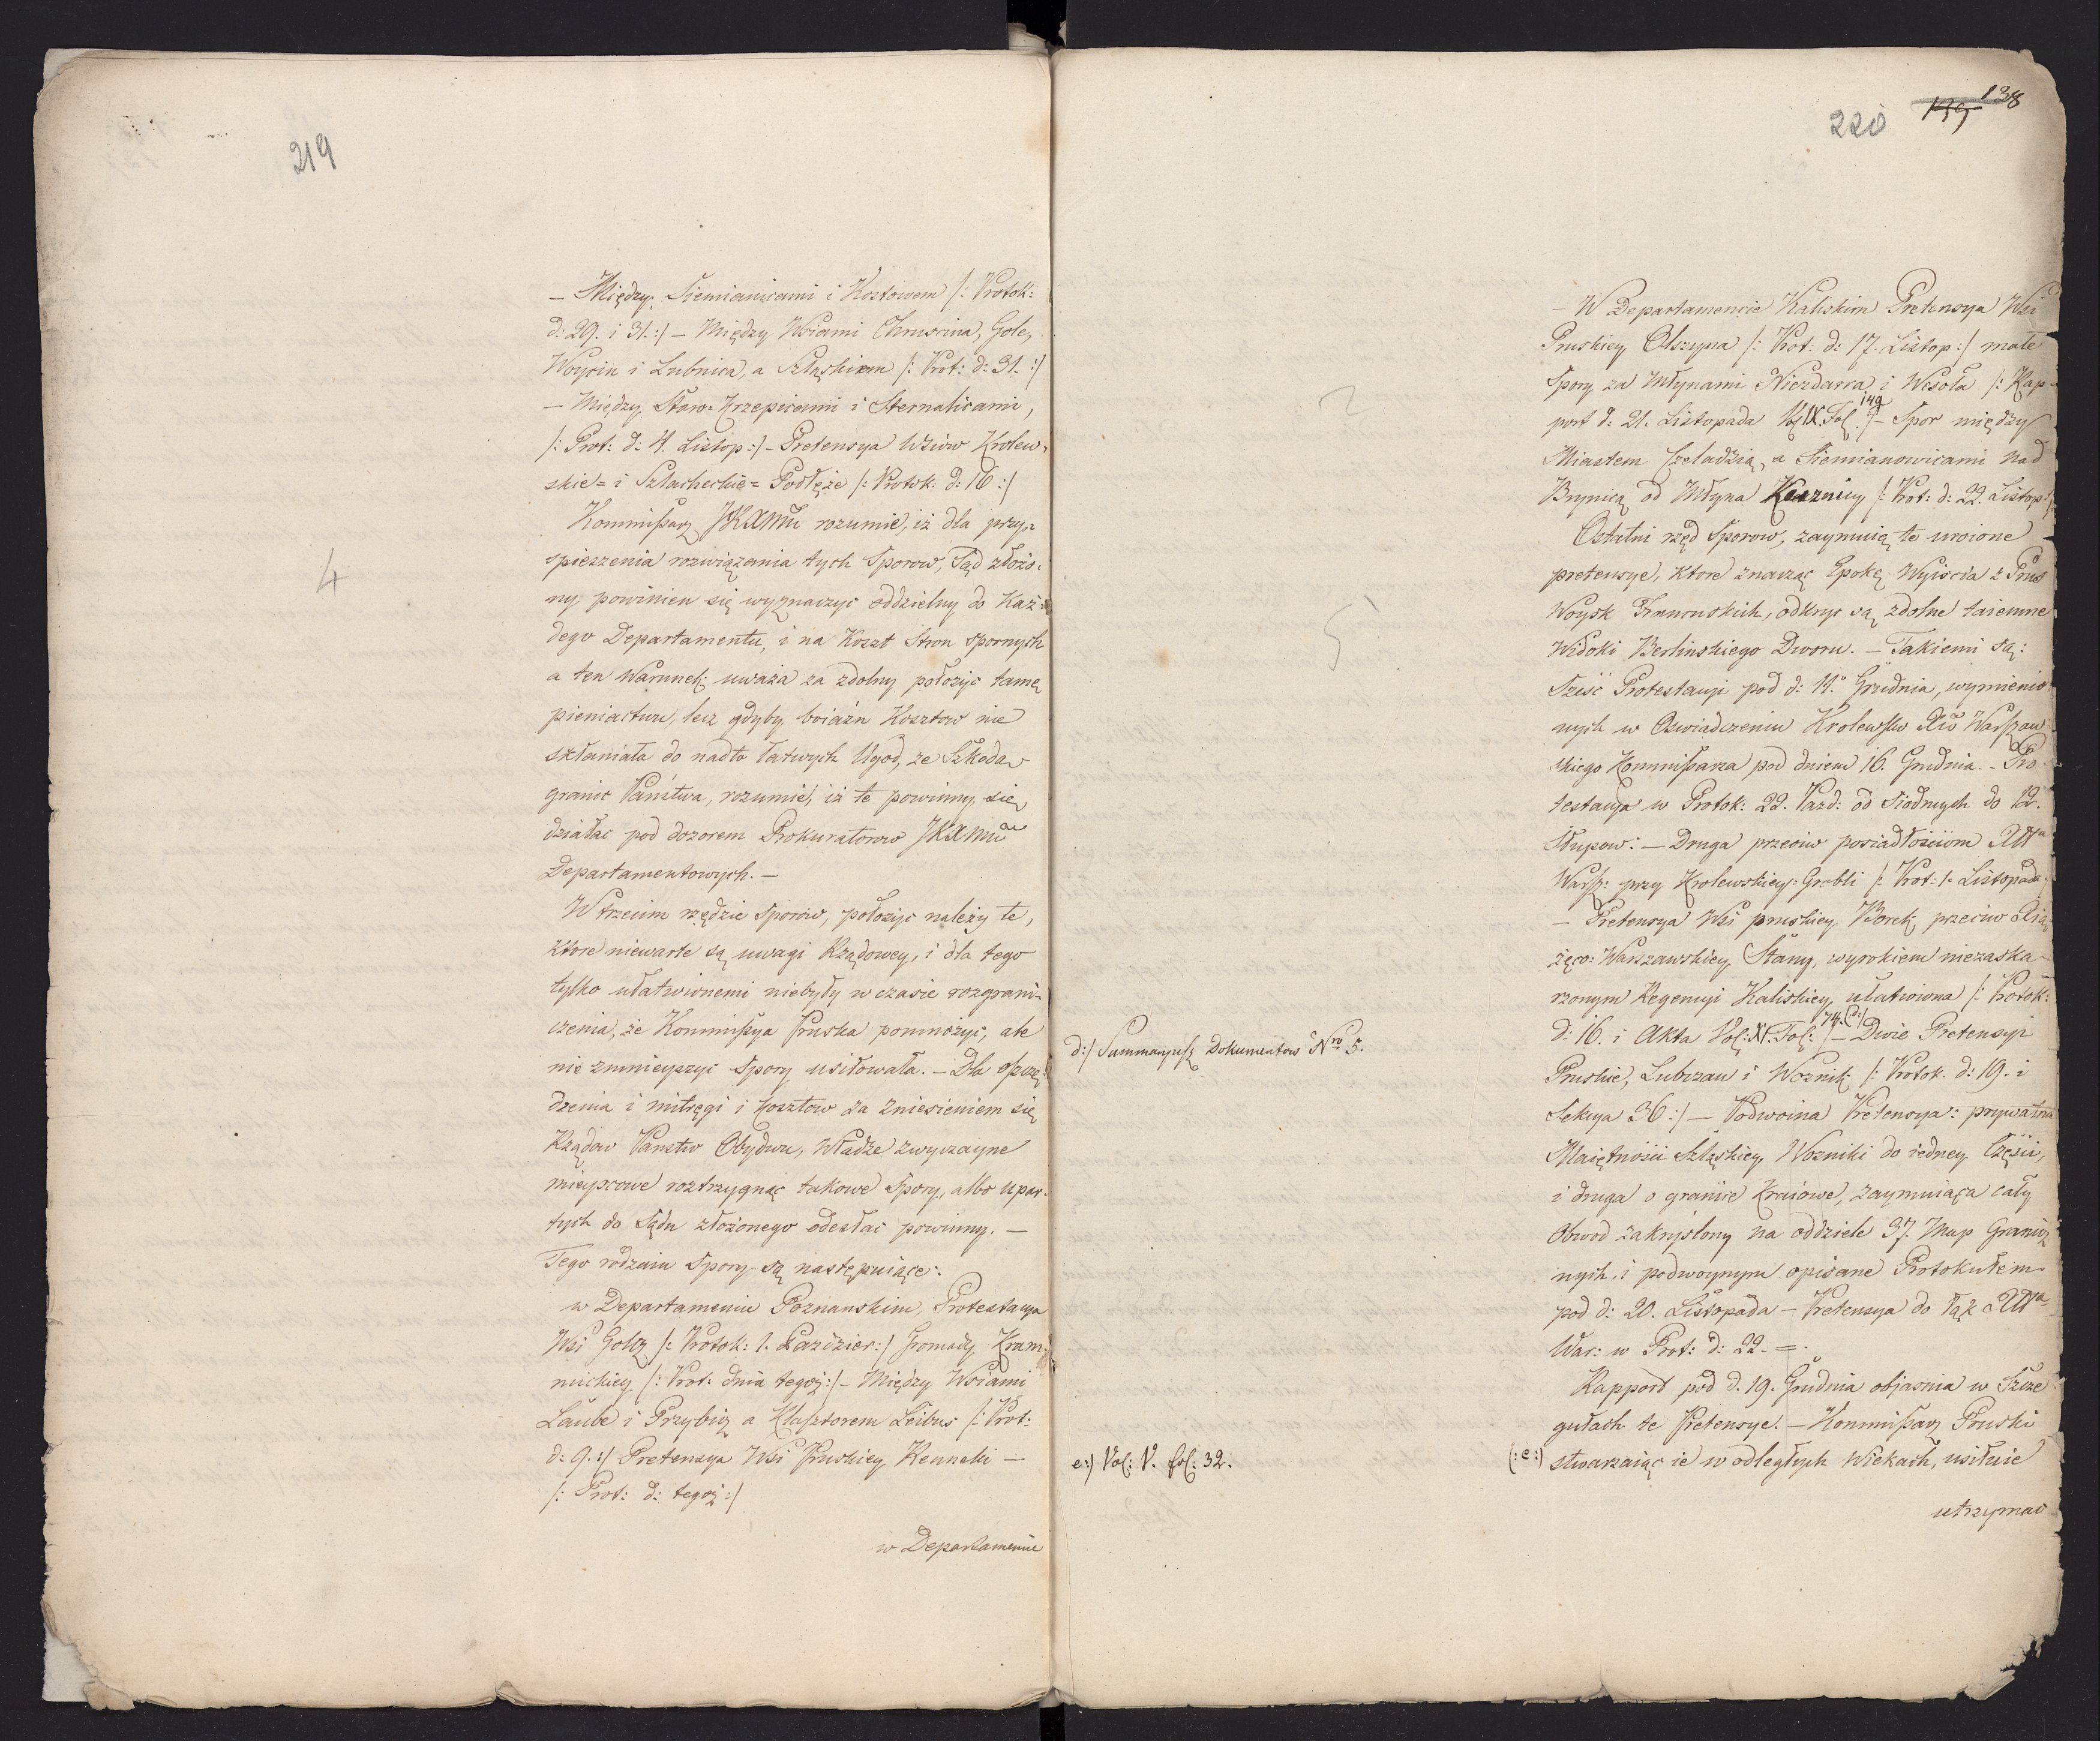 219
4
– Między Siemianicami i Kostowem /: Protok:
d: 29. i 31. :/ – Między Wsiami Chruscina, Gole,
Woycin i Lubnica, a Szląskiem /: Prot: d: 31. :/
– Między Staro-Krzepicami i Sternalicami,
/: Prot: d: 4. Listop :/ – Pretensya Wsiow Krolew-
skie= i Szlacheckie= Podłęże /: Protok: d: 16 :/
Kommissarz JKXMci rozumie, iż dla przy-
spieszenia rozwiązania tych Sporow, Sąd złożo-
ny, powinien się wyznaczyc oddzielny do Każ-
dego Departamentu, i na Koszt Stron spornych
a ten Warunek uważa za zdolny położyc tamę
pieniactwu, lecz gdyby boiaźn Kosztow nie
skłaniała do nadto łatwych Ugod, ze Szkodą
granic Państwa, rozumie, iż te powinny się
działac pod dozorem Prokuratorow JKXMci
Departamentowych. –
W trzecim rzędzie Sporów, położyc należy te,
ktore niewarte są uwagi Rządowey, i dla tego
tylko ułatwionemi niebyły w czasie rozgrani-
czenia, że Kommissya Pruska pomnożyc, ale
nie zmnieyszyc Spory usiłowała. – Dla oszczę-
dzenia i mitręgi i Kosztow za zniesieniem się
Rządow Panstw Obydwu, Władze zwyczayne
mieyscowe roztrzygnąc takowe Spory, albo upar-
tych do Sądu złożonego odesłac powinny. –
Tego rodzaiu Spory są następuiące:
w Departamencie Poznanskim, Protestacya
Wsi Golcz /: Protok: 1. Pazdzier :/ Gromady Kram-
nickiey /: Prot: dnia tegoż :/ – Między Wsiami
Laube i Przybin a Klasztorem Leibus /: Prot:
d: 9. :/ Pretensya Wsi Pruskiey Kenneki –
/: Prot: d: tegoż :/
w Departamencie
220 139 138
5
d:/ Summaryusz Dokumentow Nro 5.
e:/ Vol: V. fol: 32.
– W Departamencie Kaliskim Pretensya Wsi
Pruskiey Olszyna /: Prot: d: 17. Listop :/ małe
Spory za Młynami Niezdarka i Wesoła /: Rap-
port d: 21. Listopada Vol IX. Fol. 149 :/ – Spor między
Miastem Czeladzią, a Siemianowicami nad
Brynicą od Młyna Kuznicy /: Prot: d: 22. Listop :/
Ostatni rząd Sporow, zaymuią te uroione
pretensye, ktore znacząc Epokę Wyiscia z Prus
Woysk Francuskich, odkryc są zdolne taiemne
Widoki Berlinskiego Dworu. – Takiemi są:
Sześć Protestacyi pod d: 11. Grudnia, wymienio-
nych w Oswiadczeniu Krolewsko Xiu Warszaw-
skiego Kommissarza pod dniem 16. Grudnia. – Pro-
testacya w Protok: 22. Pazd: od Siodmych do 12.
Słupow: – Druga przeciw posiadłościom Xtwa
Warsz: przy Krolewskiey-Grobli /: Prot: 1. Listopada
– Pretensya Wsi pruskiey Borek, przeciw Xią-
żęco-Warszawskiey Stany, wyrokiem niezaska-
rzonym Regencyi Kaliskiey ułatwiona /: Protok:
d: 16. i Akta Vol: XI. Fol: 74. (d:/ – Dwie Pretensyi
Pruskie, Lubszau i Woznik /: Protok. d: 19. i
Sekcya 36 :/ – Podwoina Pretensya: prywatna
Maiętności Szląskiey Wozniki do iedney Części,
i druga o granice Kraiowe, zaymuiąca cały
Obwod zakryslony na oddziele 37. Map Granicz-
nych, i podwoynym opisane Protokułem
pod d: 20. Listopada – Pretensya do łąk Xtwa
War: w Prot: d: 22 – =.
Rapport pod d. 19. Grudnia objasnia w Szcze-
gułach te Pretensye. – Kommissarz Pruski
(:e:) stwarzaiąc ie w odległych Wiekach, usiłuie
utrzymac